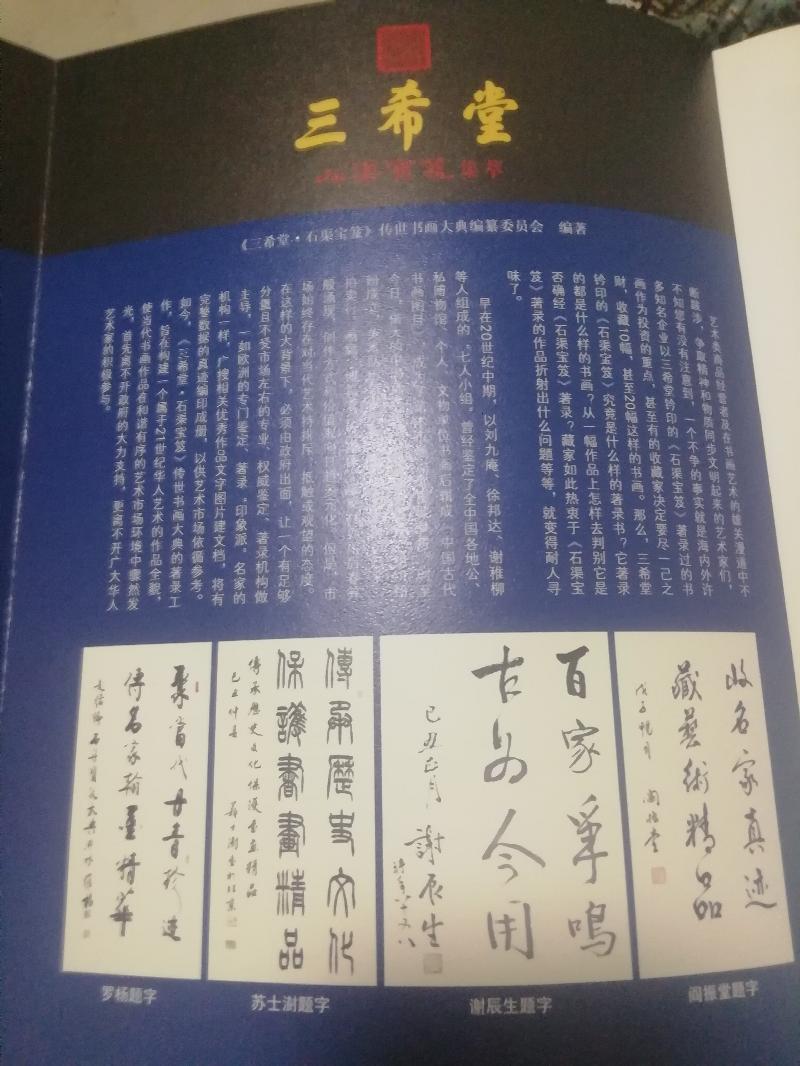 三希堂
石渠宝笈集萃
《三希堂·石渠宝笈》传世书画大典编纂委员会 编著
艺术类商品经营者及在书画艺术的雄关漫道中不
断跋涉，争取精神和物质同步文明起来的艺术家们，
不知您有没有注意到，一个不争的事实就是海内外许
多知名企业以三希堂钤印的《石渠宝笈》著录过的书
画作为投资的重点，甚至有的收藏家决定要尽一己之
财，收藏10幅，甚至20幅这样的书画。那么，三希堂
钤印的《石渠宝笈》究竟是什么样的著录书？它著录
的都是什么样的书画？从一幅作品上怎样去判别它是
否确经《石渠宝笈》著录？藏家如此热衷于《石渠宝
笈》著录的作品折射出什么问题等等，就变得耐人寻
味了。
早在20世纪中期，以刘九庵、徐邦达、谢稚柳
等人组成的“七人小组”曾经鉴定了全中国各地公、
私博物馆、个人、文物单位书画后辑成《中国古代
书画图目》
今日
场始终存在对当代艺术持排斥、抵触或观望的态度。
在这样的大背景下，必须由政府出面，让一个有足够
分量且不受市场左右的专业、权威鉴定、著录机构做
主导，一如欧洲的专门鉴定、著录“印象派”名家的
机构一样，广搜相关优秀作品文字图片建文档，将有
完整数据的真迹编印成册，以供艺术市场依循参考。
如今，《三希堂·石渠宝笈》传世书画大典的著录工
作，旨在构建一个属于21世纪华人艺术的作品全貌，
使当代书画作品在和谐有序的艺术市场环境中骤然发
光，首先离不开政府的大力支持，更离不开广大华人
艺术家的积极参与。
收名家真迹
藏艺术精品
戊子
阎振堂
百家争鸣
古为今用
己丑正月
谢辰生
時年八十又八
傳承歷史文化
保護書畫精品
傳承歷史文化保護書畫精品
己丑仲春
蘇士澍書於北京
聚當代丹青珍迹
傳名家翰墨精華
罗杨题字
苏士澍题字
谢辰生题字
阎振堂题字